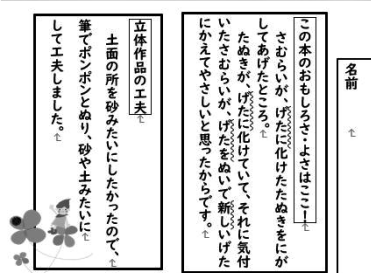 名前
この本のおもしろさ・よさはここ！
さむらいが、げたに化けたたぬきをにが
してあげたところ。
たぬきが、げたに化けていて、それに気付
いたさむらいが、げたをぬいで新しいげた
にかえてやさしいと思ったからです。
立体作品の工夫
土面の所を砂みたいにしたかったので、
筆でポンポンとぬり、砂や土みたいに
して工夫しました。